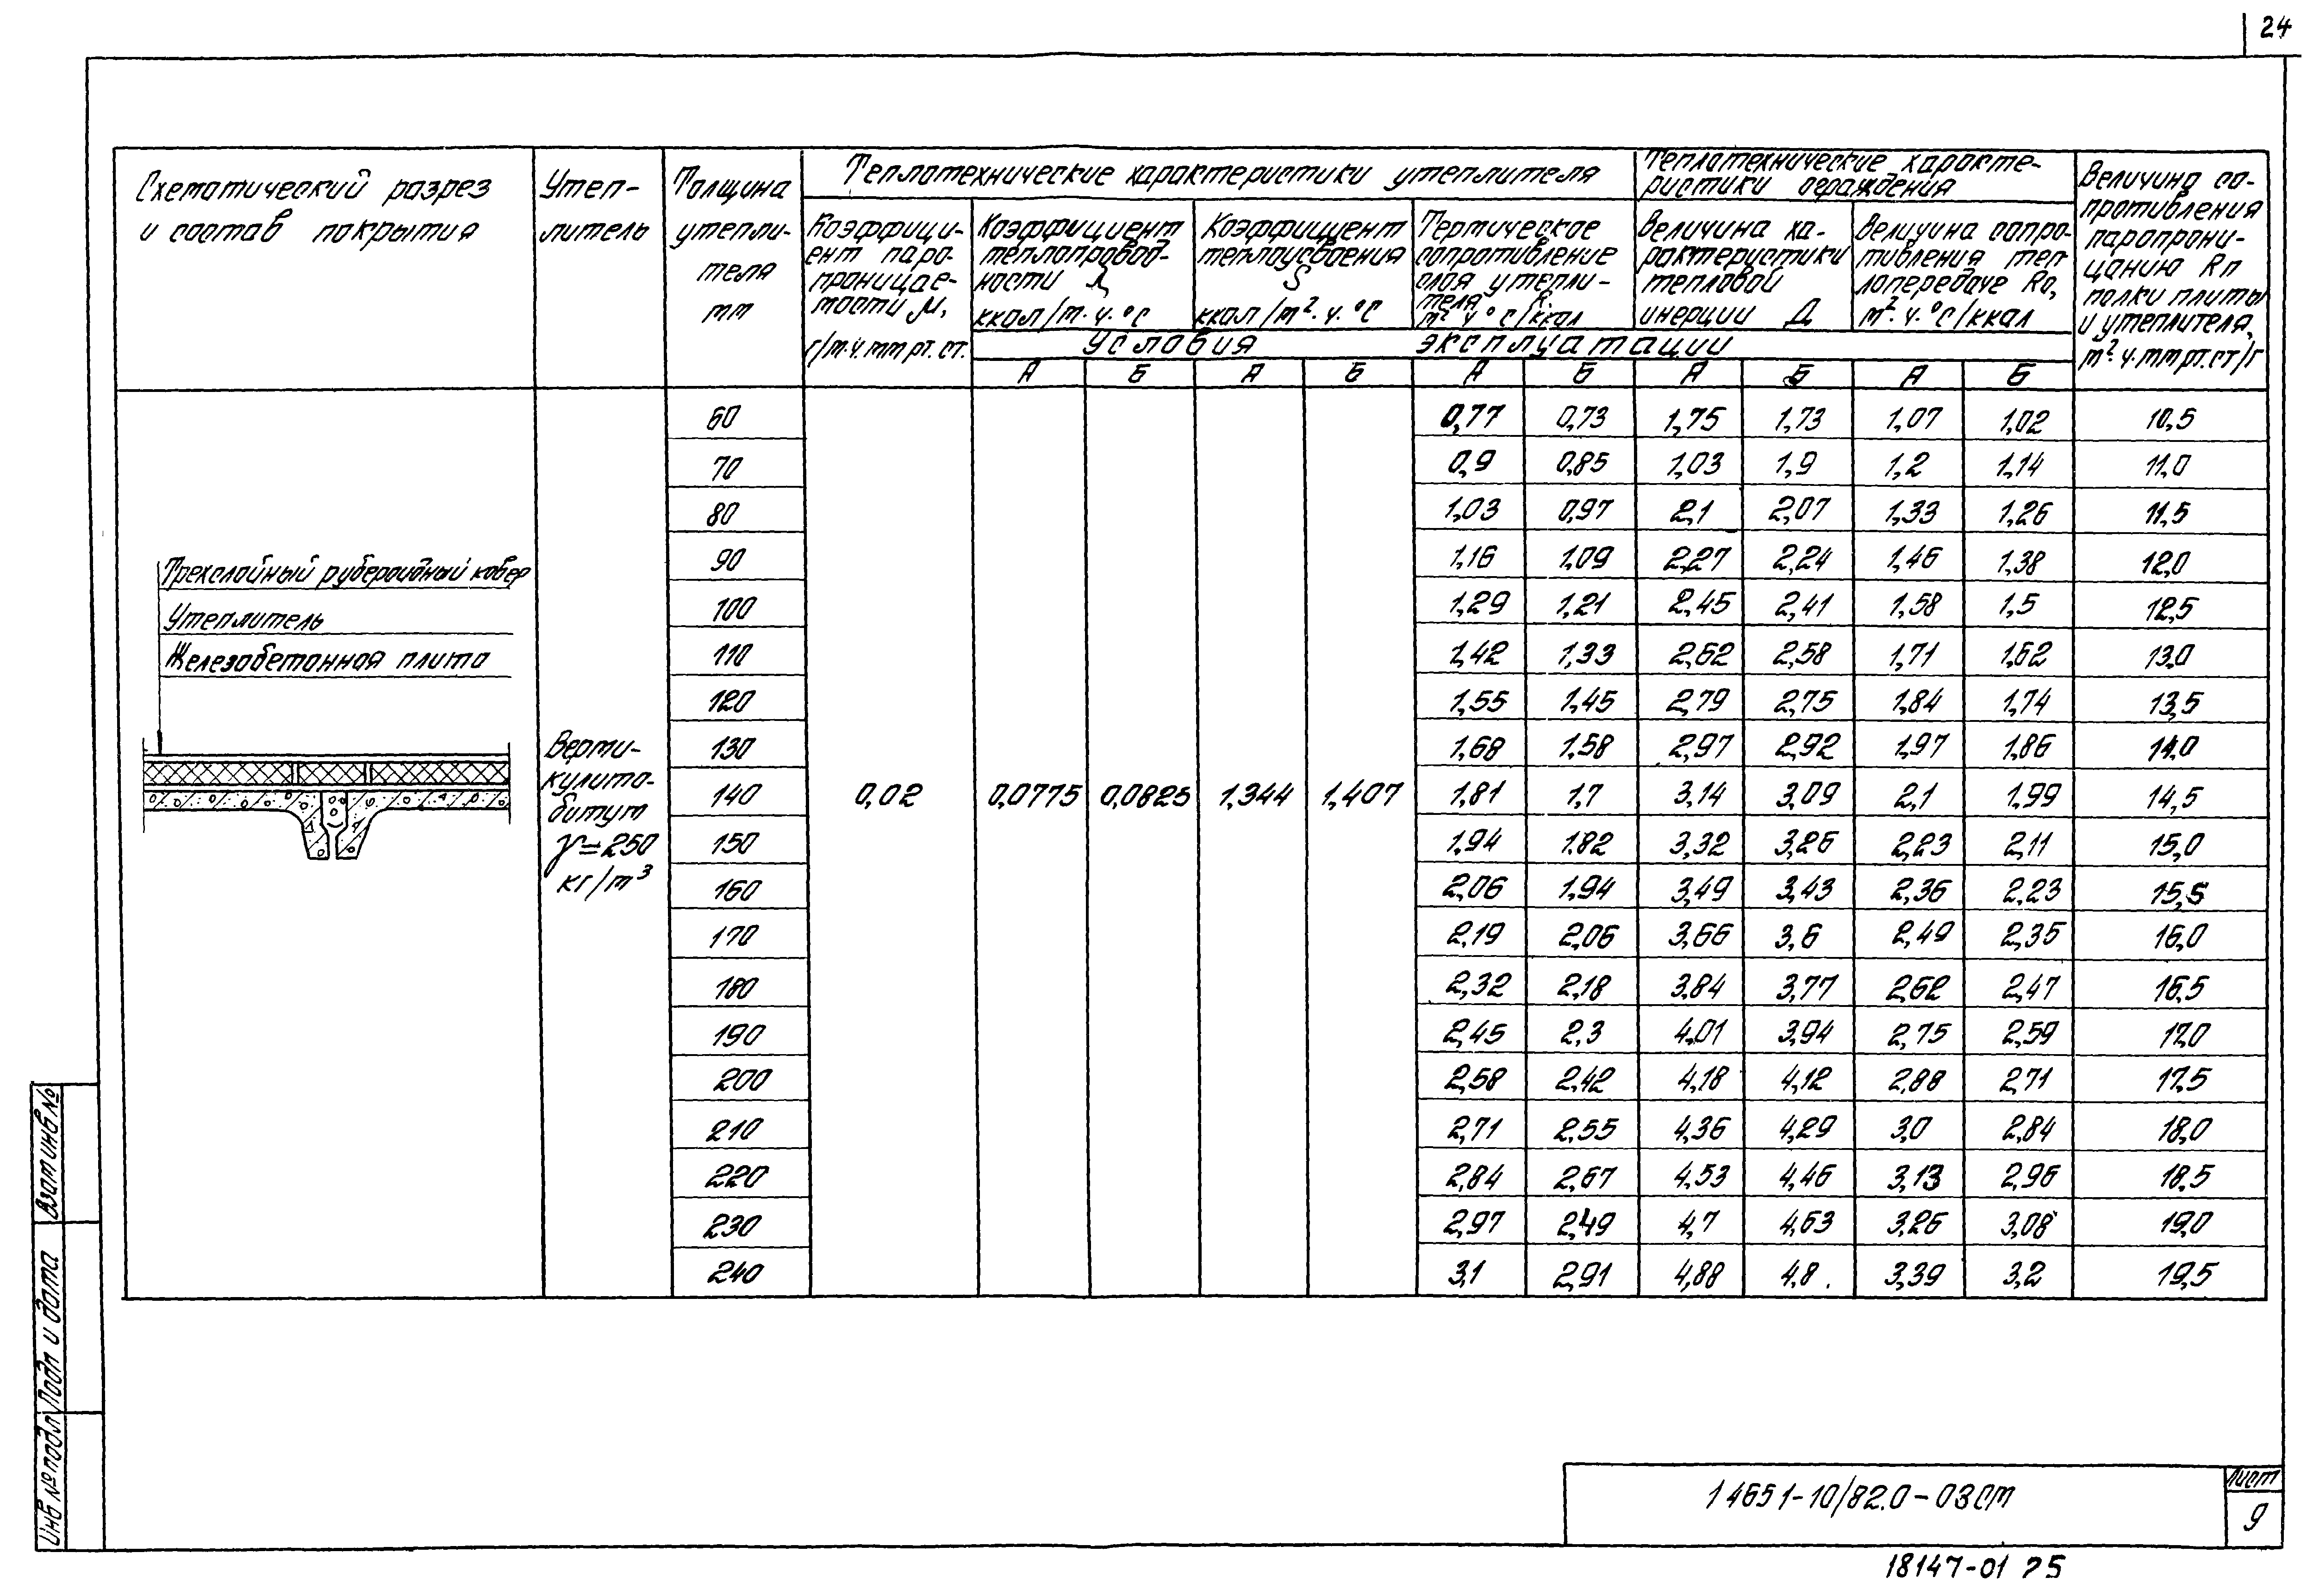 24
Схематический разрез
и состав покрытия
Утеп-
литель
Толщина
утепли-
теля
мм
Теплотехнические характеристики утеплителя
Теплотехнические характе-
ристики ограждения
Величина со-
противления
паропрони-
цанию Rп
полки плиты
и утеплителя,
м². ч. мм рт. ст/г
Коэффици-
ент паро-
проницае-
мости μ,
г/м. ч. мм рт. ст.
Коэффициент
теплопровод-
ности λ
ккал/м. ч. °С
Коэффициент
теплоусвоения
S
ккал/м². ч. °С
Термическое
сопротивление
слоя утепли-
теля R.
м² ч °С/ккал
Величина ха-
рактеристики
тепловой
инерции Д
Величина сопро-
тивления теп-
лопередаче Rо,
м². ч. °С/ккал
Условия эксплуатации
А Б А Б А Б А Б А Б
60 0,77 0,73 1,75 1,73 1,07 1,02 10,5
70 0,9 0,85 1,03 1,9 1,2 1,14 11,0
80 1,03 0,97 2,1 2,07 1,33 1,26 11,5
90 1,16 1,09 2,27 2,24 1,46 1,38 12,0
100 1,29 1,21 2,45 2,41 1,58 1,5 12,5
110 1,42 1,33 2,62 2,58 1,71 1,62 13,0
120 1,55 1,45 2,79 2,75 1,84 1,74 13,5
130 1,68 1,58 2,97 2,92 1,97 1,86 14,0
140 0,02 0,0775 0,0825 1,344 1,407 1,81 1,7 3,14 3,09 2,1 1,99 14,5
150 1,94 1,82 3,32 3,26 2,23 2,11 15,0
160 2,06 1,94 3,49 3,43 2,36 2,23 15,5
170 2,19 2,06 3,66 3,6 2,49 2,35 16,0
180 2,32 2,18 3,84 3,77 2,62 2,47 16,5
190 2,45 2,3 4,01 3,94 2,75 2,59 17,0
200 2,58 2,42 4,18 4,12 2,88 2,71 17,5
210 2,71 2,55 4,36 4,29 3,0 2,84 18,0
220 2,84 2,67 4,53 4,46 3,13 2,96 18,5
230 2,97 2,49 4,7 4,63 3,26 3,08 19,0
240 3,1 2,91 4,88 4,8 3,39 3,2 19,5
Трехслойный рубероидный ковер
Утеплитель
Железобетонная плита
Верми-
кулито-
битум
γ=250
кг/м³
Взам инв №
Подп и дата
Инв № подл
1 465 1-10/82.0-03СМ
Лист
9
18147-01 25